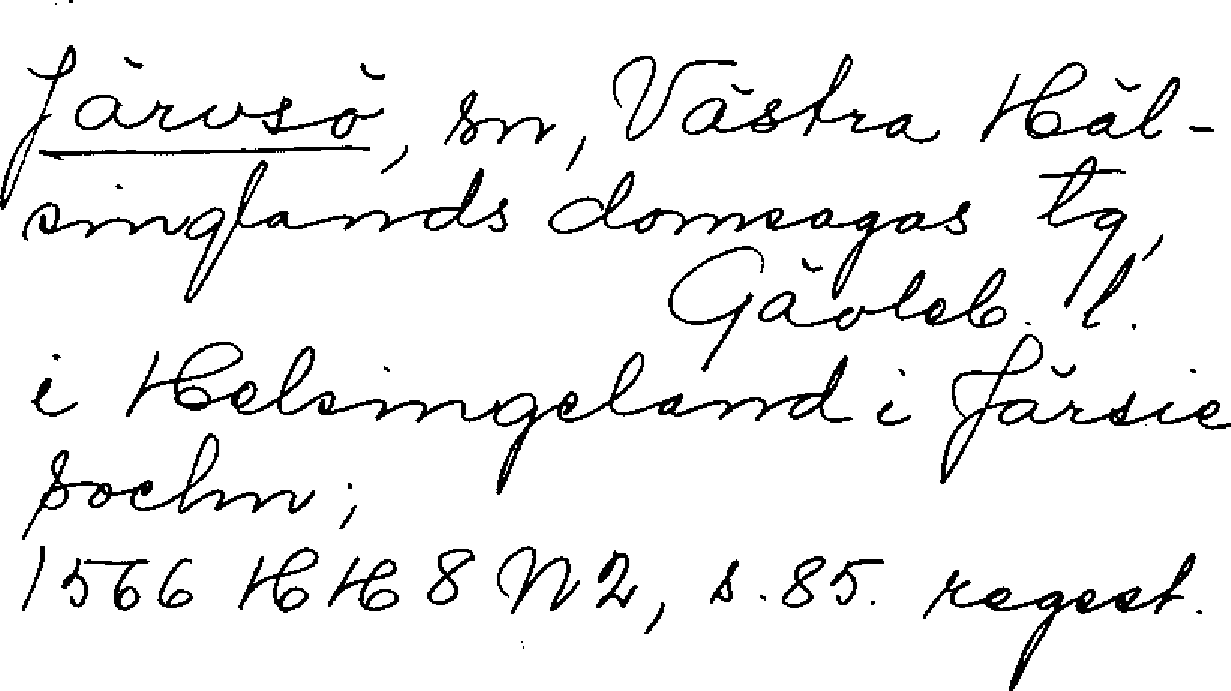 Järvsö, sn, Västra Häl-
singlands domsagas tg,
Gävleb. l.
i Helsingeland i Järsie
sochn;
1566 HH 8 N 2, s. 85. regest.